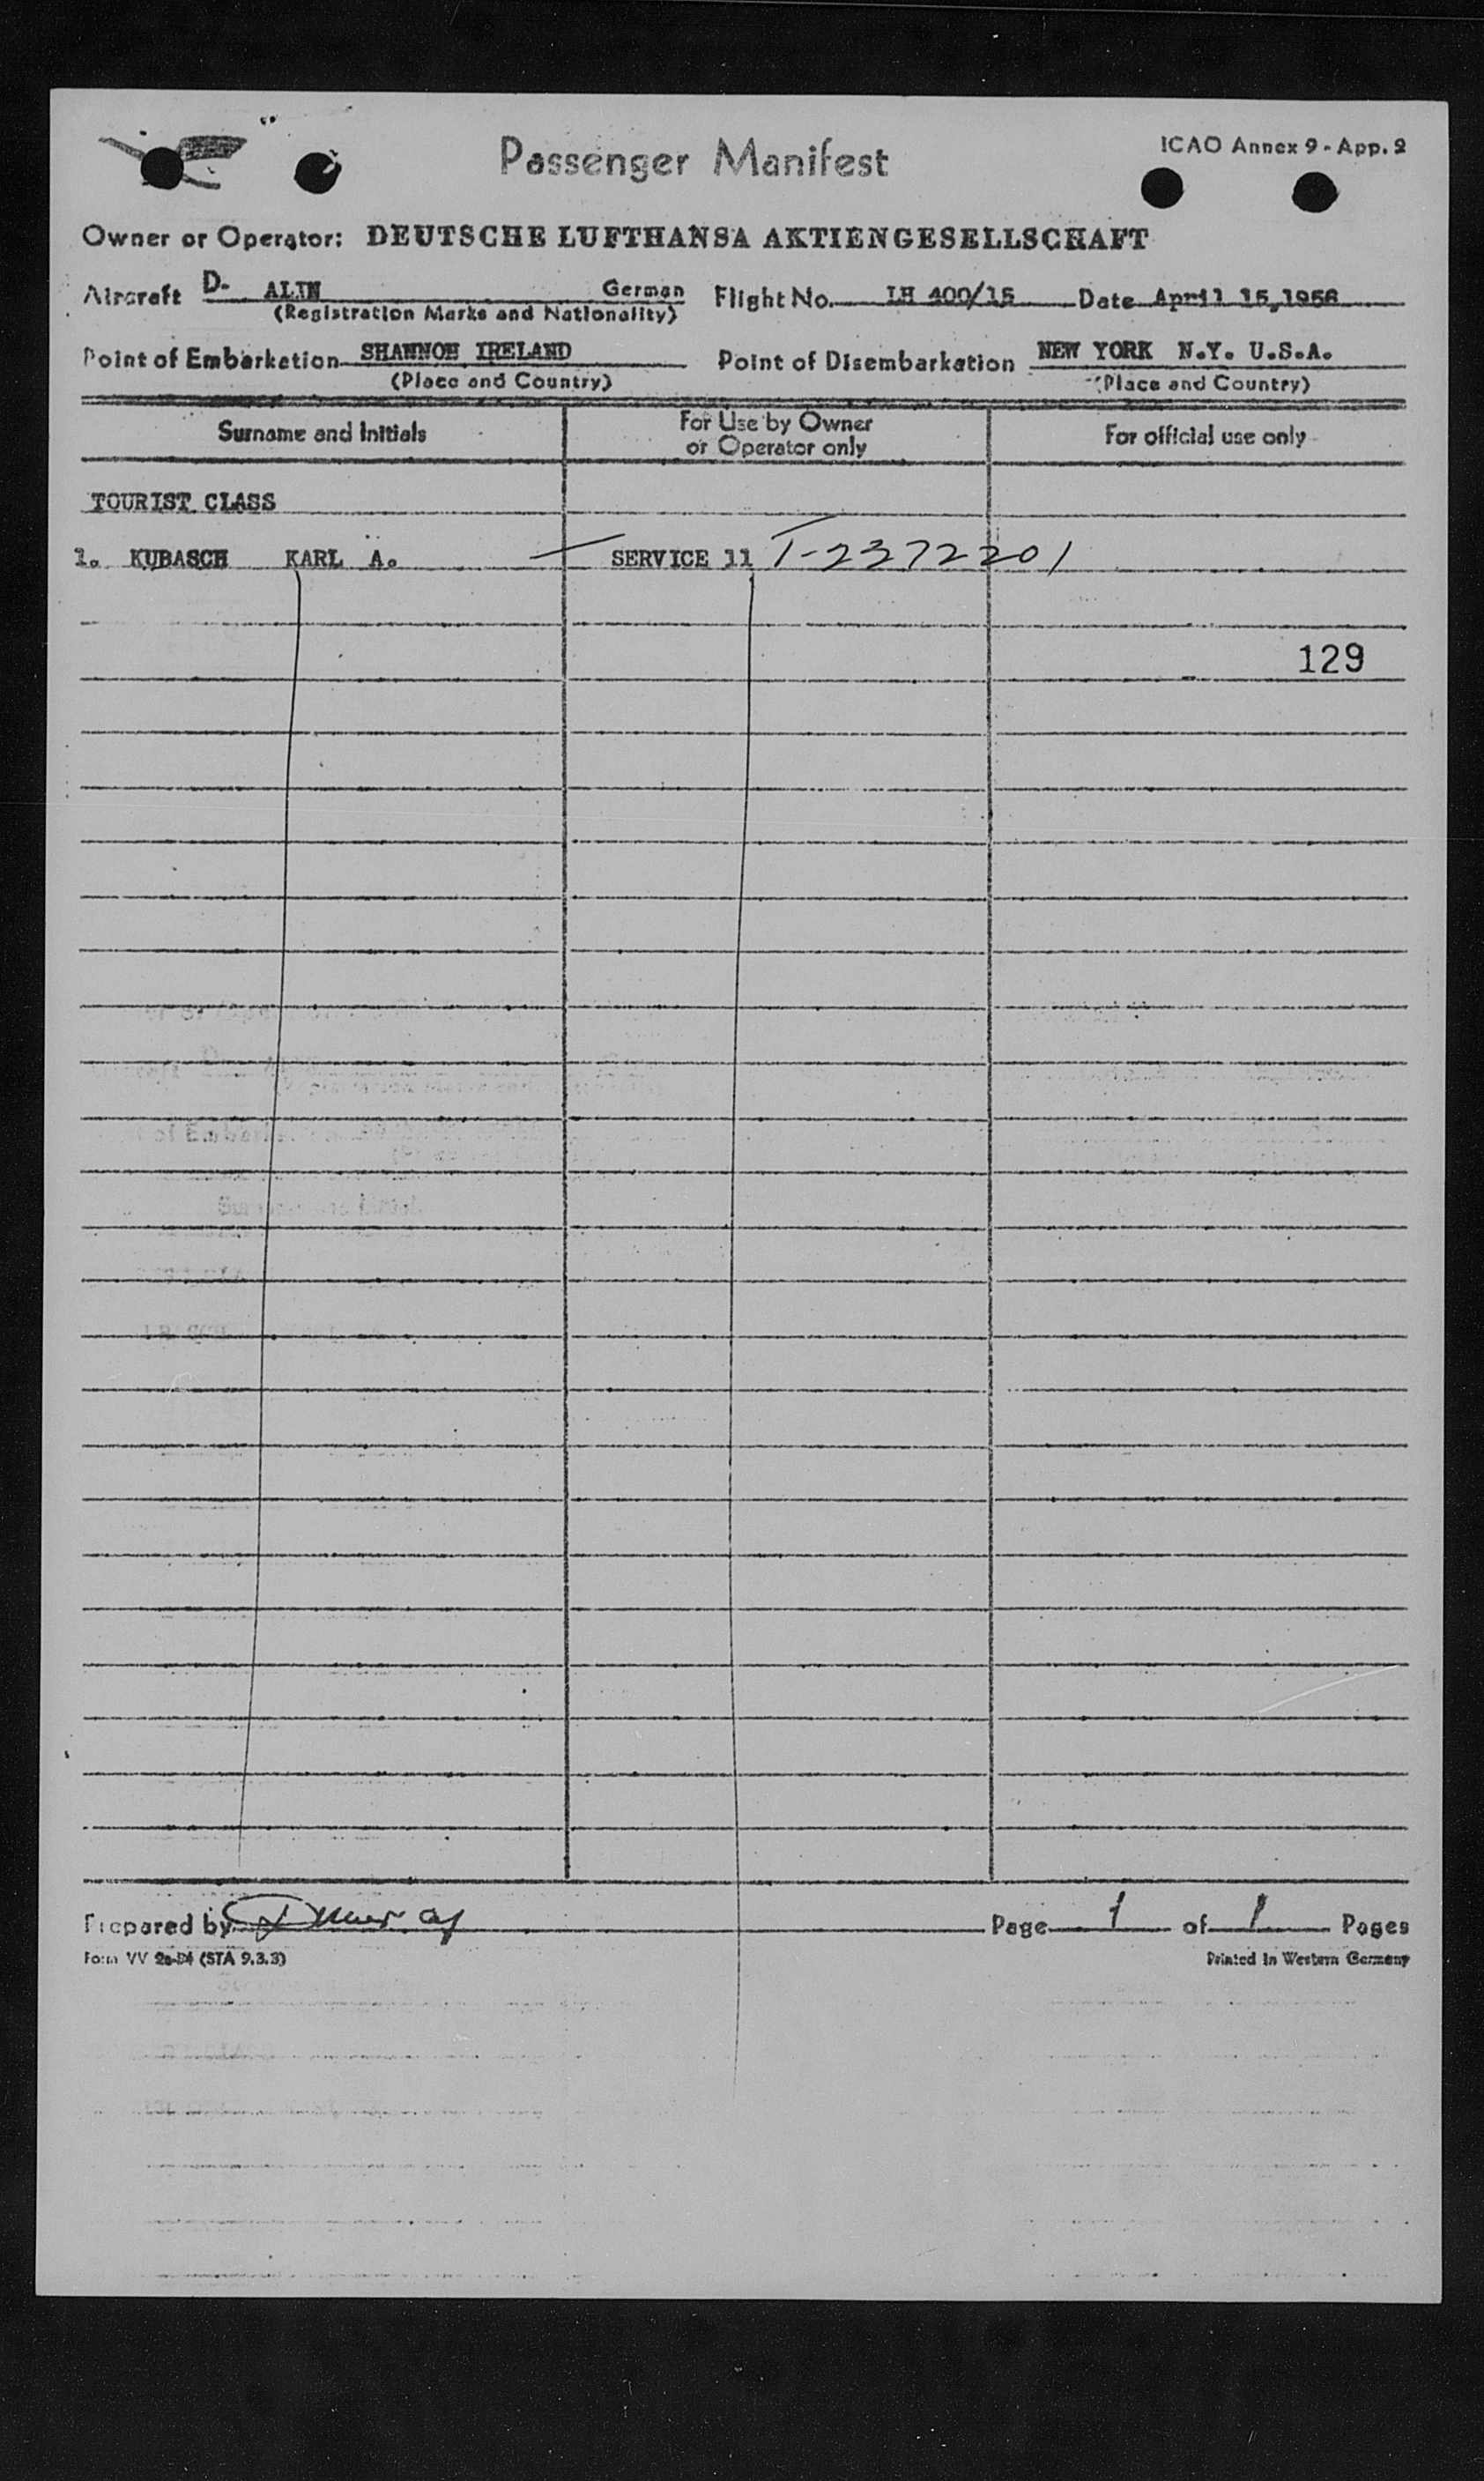 Passenger Manifest
ICAO Annex 9 - App. 2
Owner or Operator: DEUTSCHE LUFTHANSA AKTIENGESELLSCHAFT
Aircraft D- ALIN German Flight No. LH 400/15 Date April 15, 1956
(Registration Marks and Nationality)
Point of Embarkation SHANNON IRELAND Point of Disembarkation NEW YORK N.Y. U.S.A.
(Place and Country) (Place and Country)
Surname and Initials For Use by Owner or Operator only For official use only
TOURIST CLASS
1. KUBASCH KARL A. — SERVICE 11 T-2372201
129
Prepared by Page 1 of 1 Pages
Form VV 2a-54 (STA 9.3.3) Printed in Western Germany